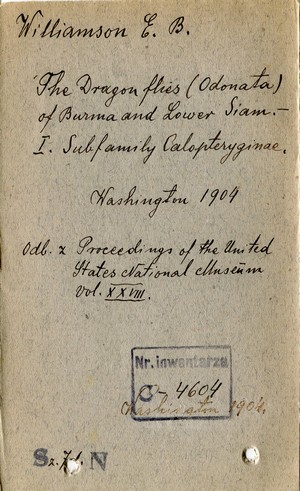 Williamson E. B.
The Dragonflies (Odonata)
of Burma and Lower Siam.–
I. Subfamily Calopteryginae.
Washington 1904
Odb. z Proceedings of the United
States National Museum
vol. XXVIII.
Nr. inwentarza
C– 4604
Washington 1904.
S N